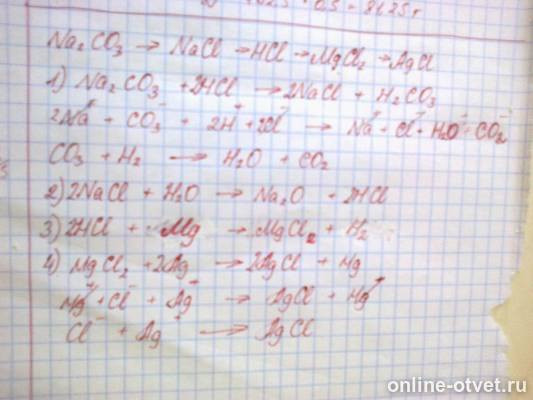 Na₂CO₃ → NaCl → HCl → MgCl₂ → AgCl
1) Na₂CO₃ + 2HCl → 2NaCl + H₂CO₃
2Na⁺ + CO₃⁻ + 2H⁺ + 2Cl⁻ → Na⁺ + Cl⁻ + H₂O + CO₂
CO₃ + H₂ → H₂O + CO₂
2) 2NaCl + H₂O → Na₂O + 2HCl
3) 2HCl + Mg → MgCl₂ + H₂
4) MgCl₂ + 2Ag → 2AgCl + Mg
Mg⁺ + Cl⁻ + Ag⁺ → AgCl + Mg⁺
Cl⁻ + Ag⁺ → AgCl
online-otvet.ru